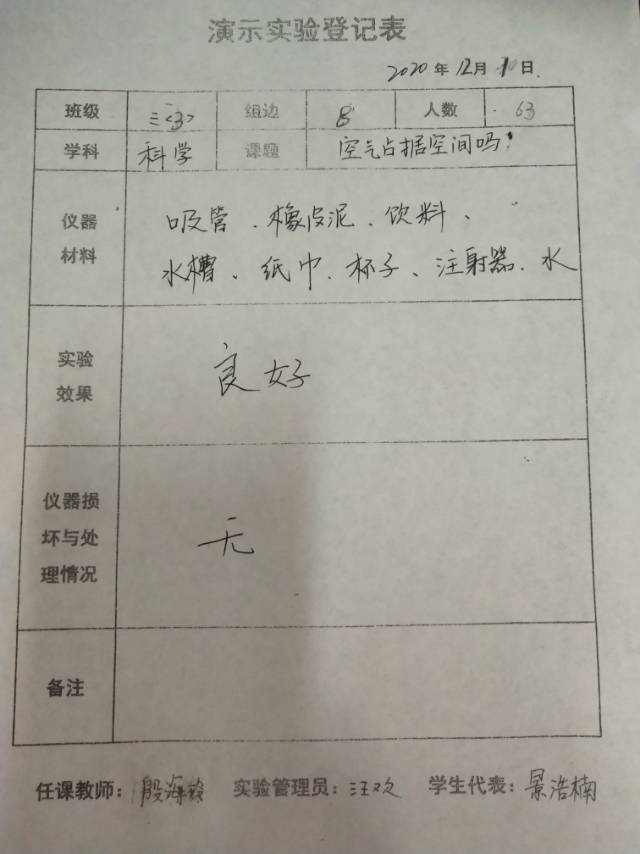 演示实验登记表
2020年12月1日
班级 三<3> 组边 8 人数 63
学科 科学 课题 空气占据空间吗?
仪器材料 吸管、橡皮泥、饮料、
水槽、纸巾、杯子、注射器、水
实验效果 良好
仪器损坏与处理情况 无
备注
任课教师:殷海 实验管理员:汪欢 学生代表:景浩楠